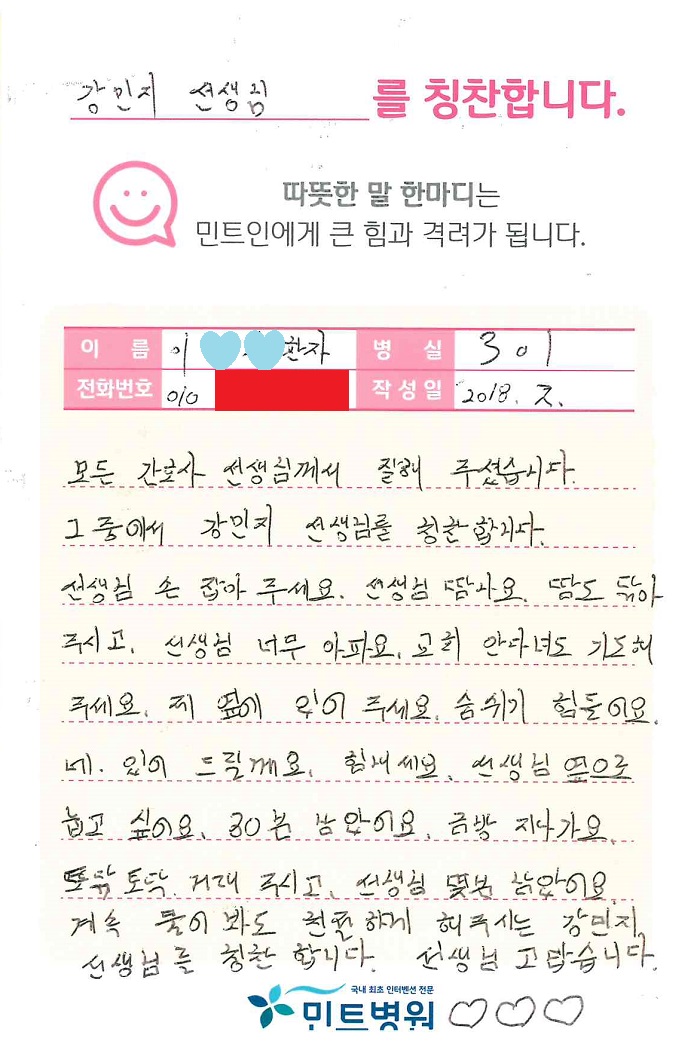 강민지 선생님 를 칭찬합니다.
따뜻한 말 한마디는
민트인에게 큰 힘과 격려가 됩니다.
이 름 이 환자 병 실 301
전화번호 010 작성일 2018. 7.
모든 간호사 선생님께서 잘해 주셨습니다.
그 중에서 강민지 선생님를 칭찬합니다.
선생님 손 잡아 주세요. 선생님 땀나요. 땀도 닦아
주시고, 선생님 너무 아파요. 교회 안다녀도 기도해
주세요. 제 옆에 있어 주세요. 숨쉬기 힘들어요.
네. 있어 드릴게요. 힘내세요. 선생님 옆으로
눕고 싶어요. 30분 남았어요. 금방 지나가요.
토닥 토닥. 거려 주시고, 선생님 몇분 남았어요.
계속 물어봐도 친절하게 해주시는 강민지
선생님를 칭찬 합니다. 선생님 고맙습니다.
국내 최초 인터벤션 전문
민트병원